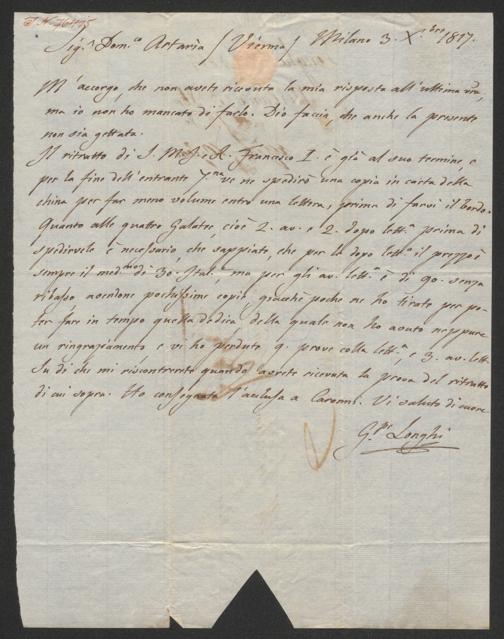 Sig.r Dom.co Artaria / Vienna / Milano 3. X.bre 1817.
M'accorgo, che non avete ricevuto la mia risposta all'ultima vra,
ma io non ho mancato di farlo. Dio faccia, che anche la presente
non sia gettata.
Il ritratto di S. M. I. e A. Francesco I. è già al suo termine, e
per la fine dell'entrante ve ne spedirò una copia in carta della
china per far meno volume entro una lettera, prima di farvi il bordo.
Quanto alle quattro Galatee, cioè 2. av. e 2. dopo lett.a prima di
spedirvele è necessario, che sappiate, che per le dopo lett.a il prezzo è
sempre il med.mo di 30. Ital., ma per gli av. lett.a è di 90. senza
ribasso avendone pochissime copie, giacchè poche ne ho tirate per po-
ter fare in tempo quella dedica, della quale non ho avuto neppure
un ringraziamento e vi ho perduto 9. prove colla lett.a e 3. av. lett.a
Su di chi mi riscontrerete quando avrete ricevuta la prova del ritratto
di cui sopra. Ho consegnato l'acclusa a Caronni. Vi saluto di cuore
G.pe Longhi